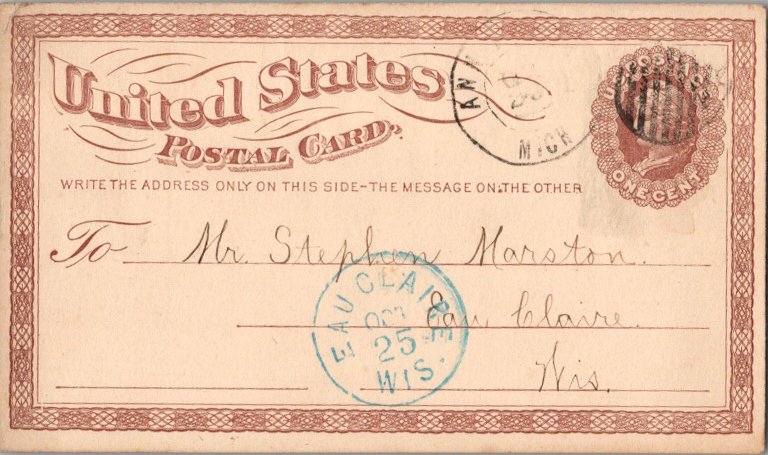 United States
POSTAL CARD.
WRITE THE ADDRESS ONLY ON THIS SIDE-THE MESSAGE ON THE OTHER
ANN
MICH
U.S. POSTAGE
ONE CENT
To Mr. Stephen Marston.
Eau Claire.
Wis.
EAU CLAIRE
OCT
25
WIS.